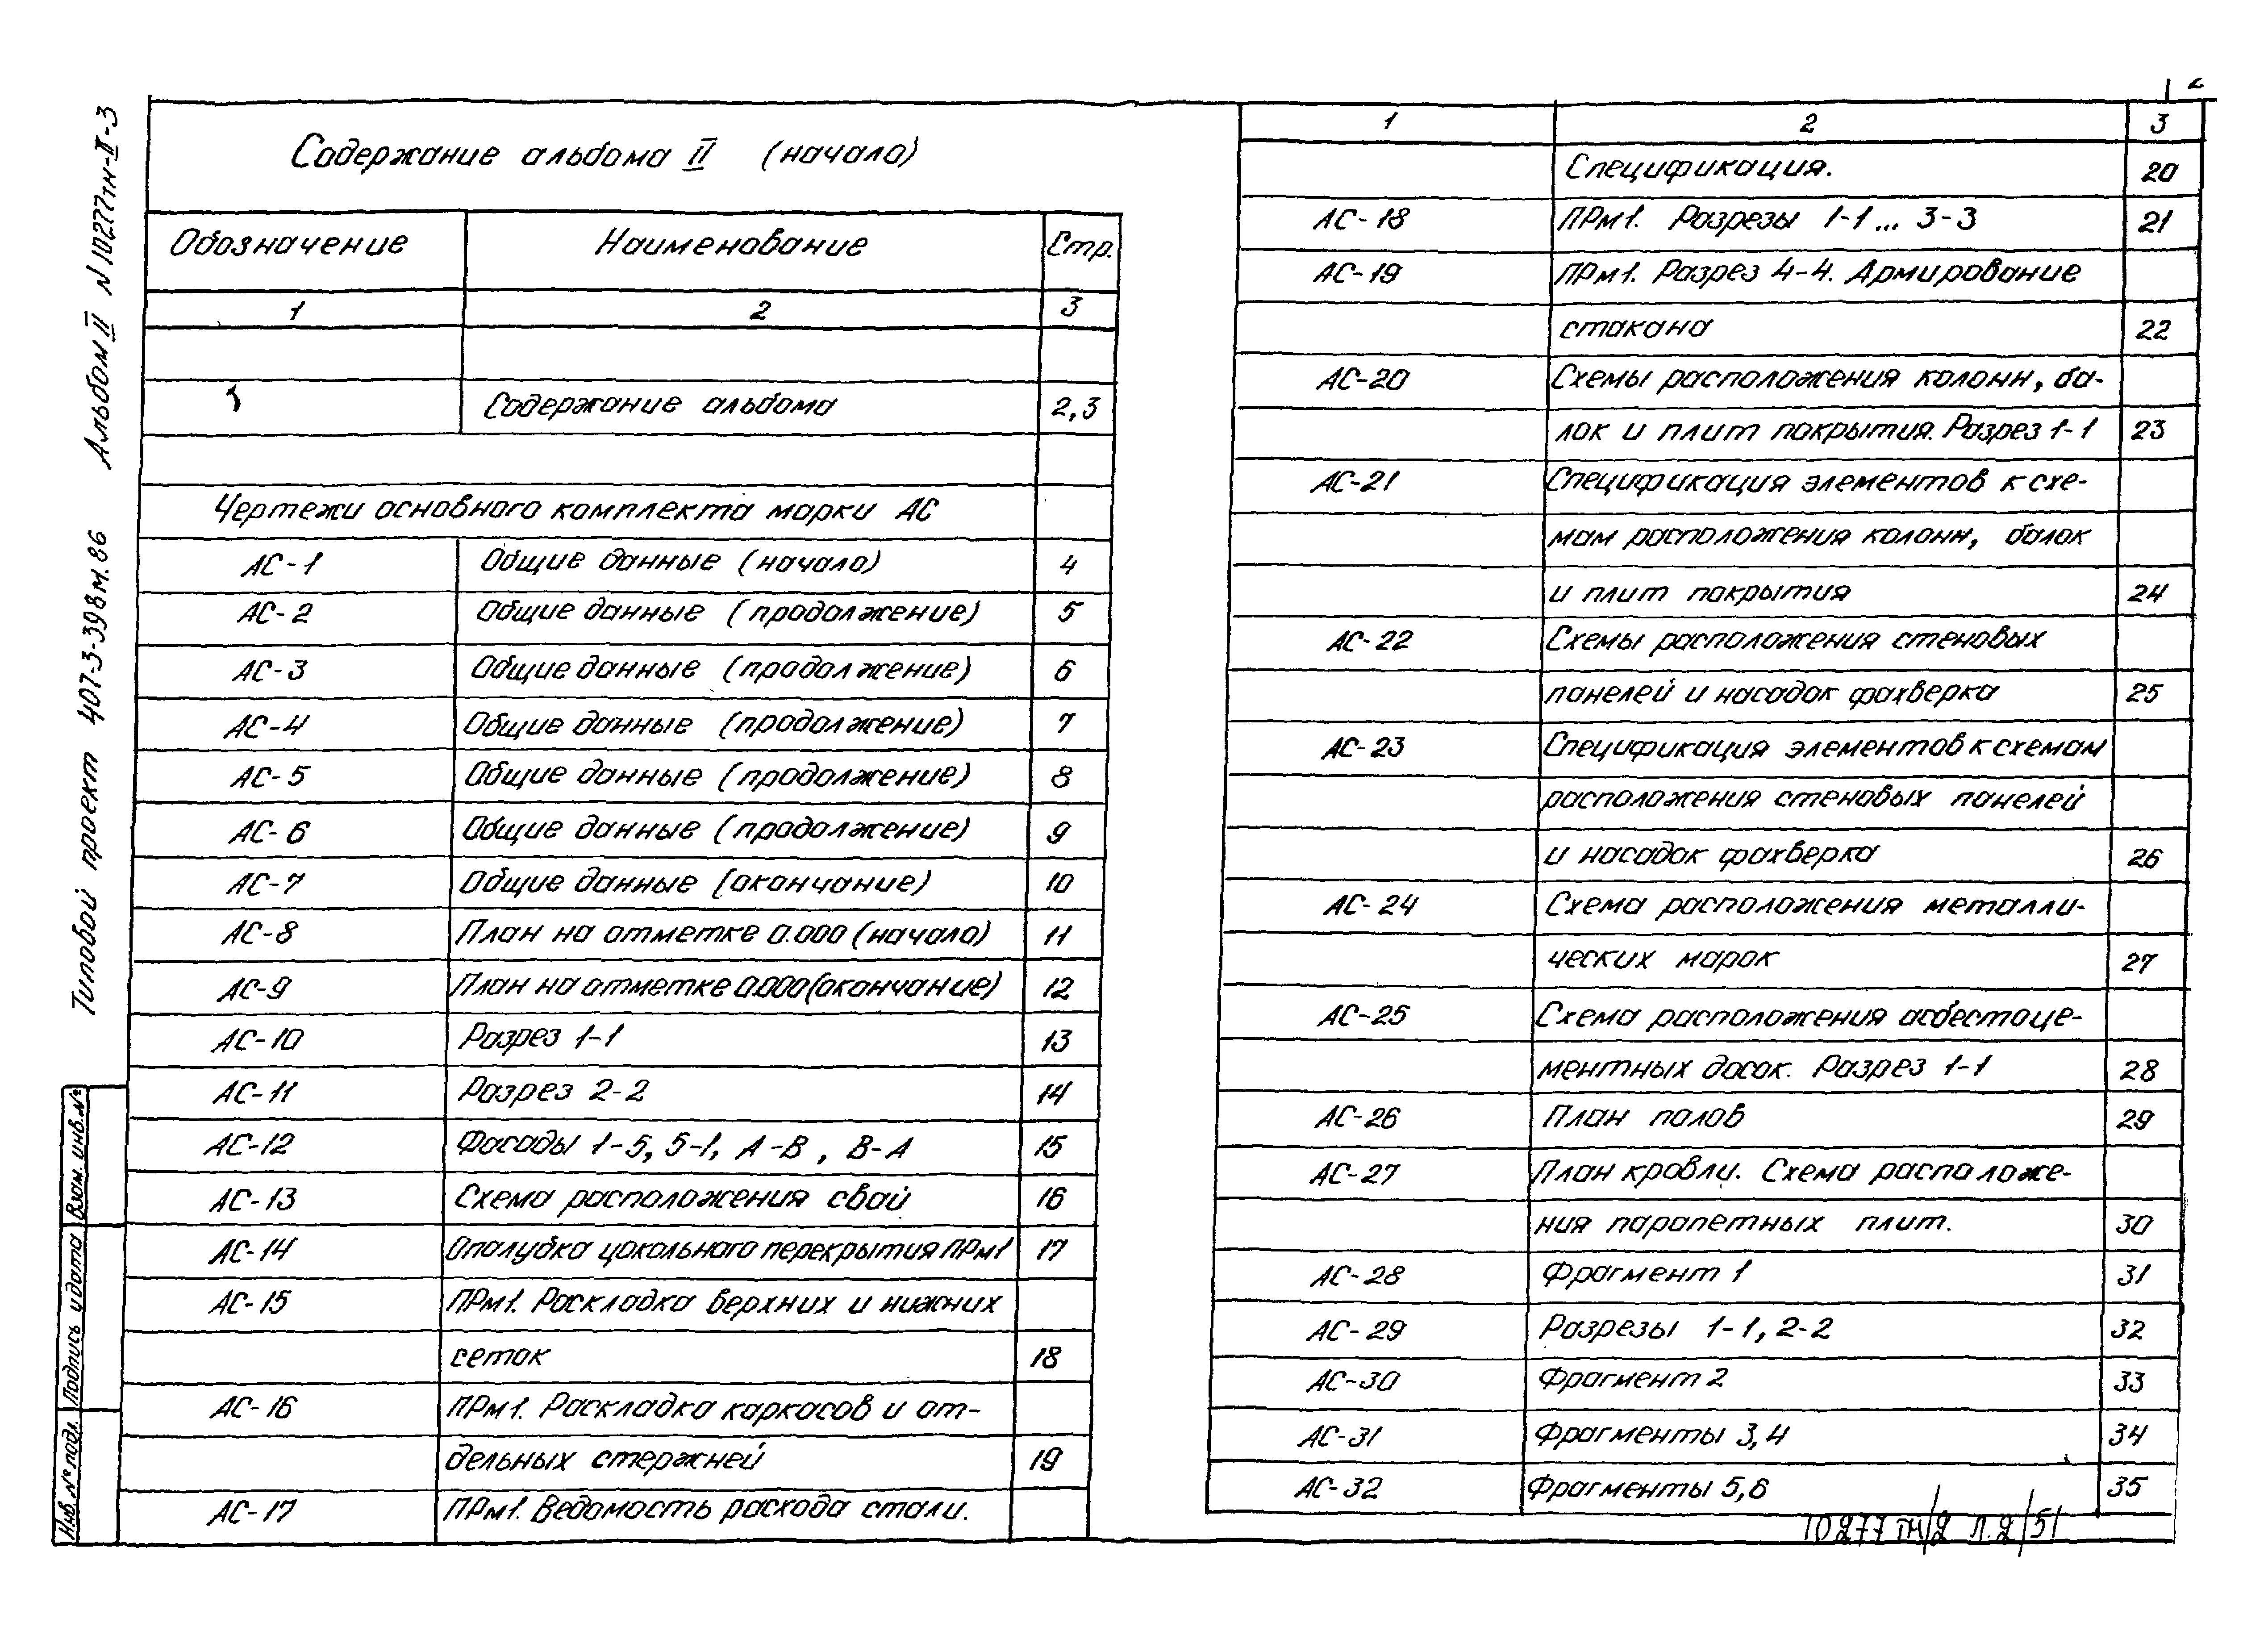 2
Типовой проект 407-3-398м.86 Альбом II N10277тм-II-3
Содержание альбома II (начало)
Обозначение Наименование Стр.
1 2 3
Содержание альбома 2,3
Чертежи основного комплекта марки АС
АС-1 Общие данные (начало) 4
АС-2 Общие данные (продолжение) 5
АС-3 Общие данные (продолжение) 6
АС-4 Общие данные (продолжение) 7
АС-5 Общие данные (продолжение) 8
АС-6 Общие данные (продолжение) 9
АС-7 Общие данные (окончание) 10
АС-8 План на отметке 0.000 (начало) 11
АС-9 План на отметке 0.000 (окончание) 12
АС-10 Разрез 1-1 13
АС-11 Разрез 2-2 14
АС-12 Фасады 1-5, 5-1, А-В, В-А 15
АС-13 Схема расположения свай 16
АС-14 Опалубка цокольного перекрытия ПРм1 17
АС-15 ПРм1. Раскладка верхних и нижних
сеток 18
АС-16 ПРм1. Раскладка каркасов и от-
дельных стержней 19
АС-17 ПРм1. Ведомость расхода стали.
1 2 3
Спецификация. 20
АС-18 ПРм1. Разрезы 1-1... 3-3 21
АС-19 ПРм1. Разрез 4-4. Армирование
стакана 22
АС-20 Схемы расположения колонн, ба-
лок и плит покрытия. Разрез 1-1 23
АС-21 Спецификация элементов к схе-
мам расположения колонн, балок
и плит покрытия 24
АС-22 Схемы расположения стеновых
панелей и насадок фахверка 25
АС-23 Спецификация элементов к схемам
расположения стеновых панелей
и насадок фахверка 26
АС-24 Схема расположения металли-
ческих марок 27
АС-25 Схема расположения асбестоце-
ментных досок. Разрез 1-1 28
АС-26 План полов 29
АС-27 План кровли. Схема расположе-
ния парапетных плит. 30
АС-28 Фрагмент 1 31
АС-29 Разрезы 1-1, 2-2 32
АС-30 Фрагмент 2 33
АС-31 Фрагменты 3,4 34
АС-32 Фрагменты 5,6 35
Инв. № подл. Подпись и дата Взам. инв. №
10277тм/2 л.2/51